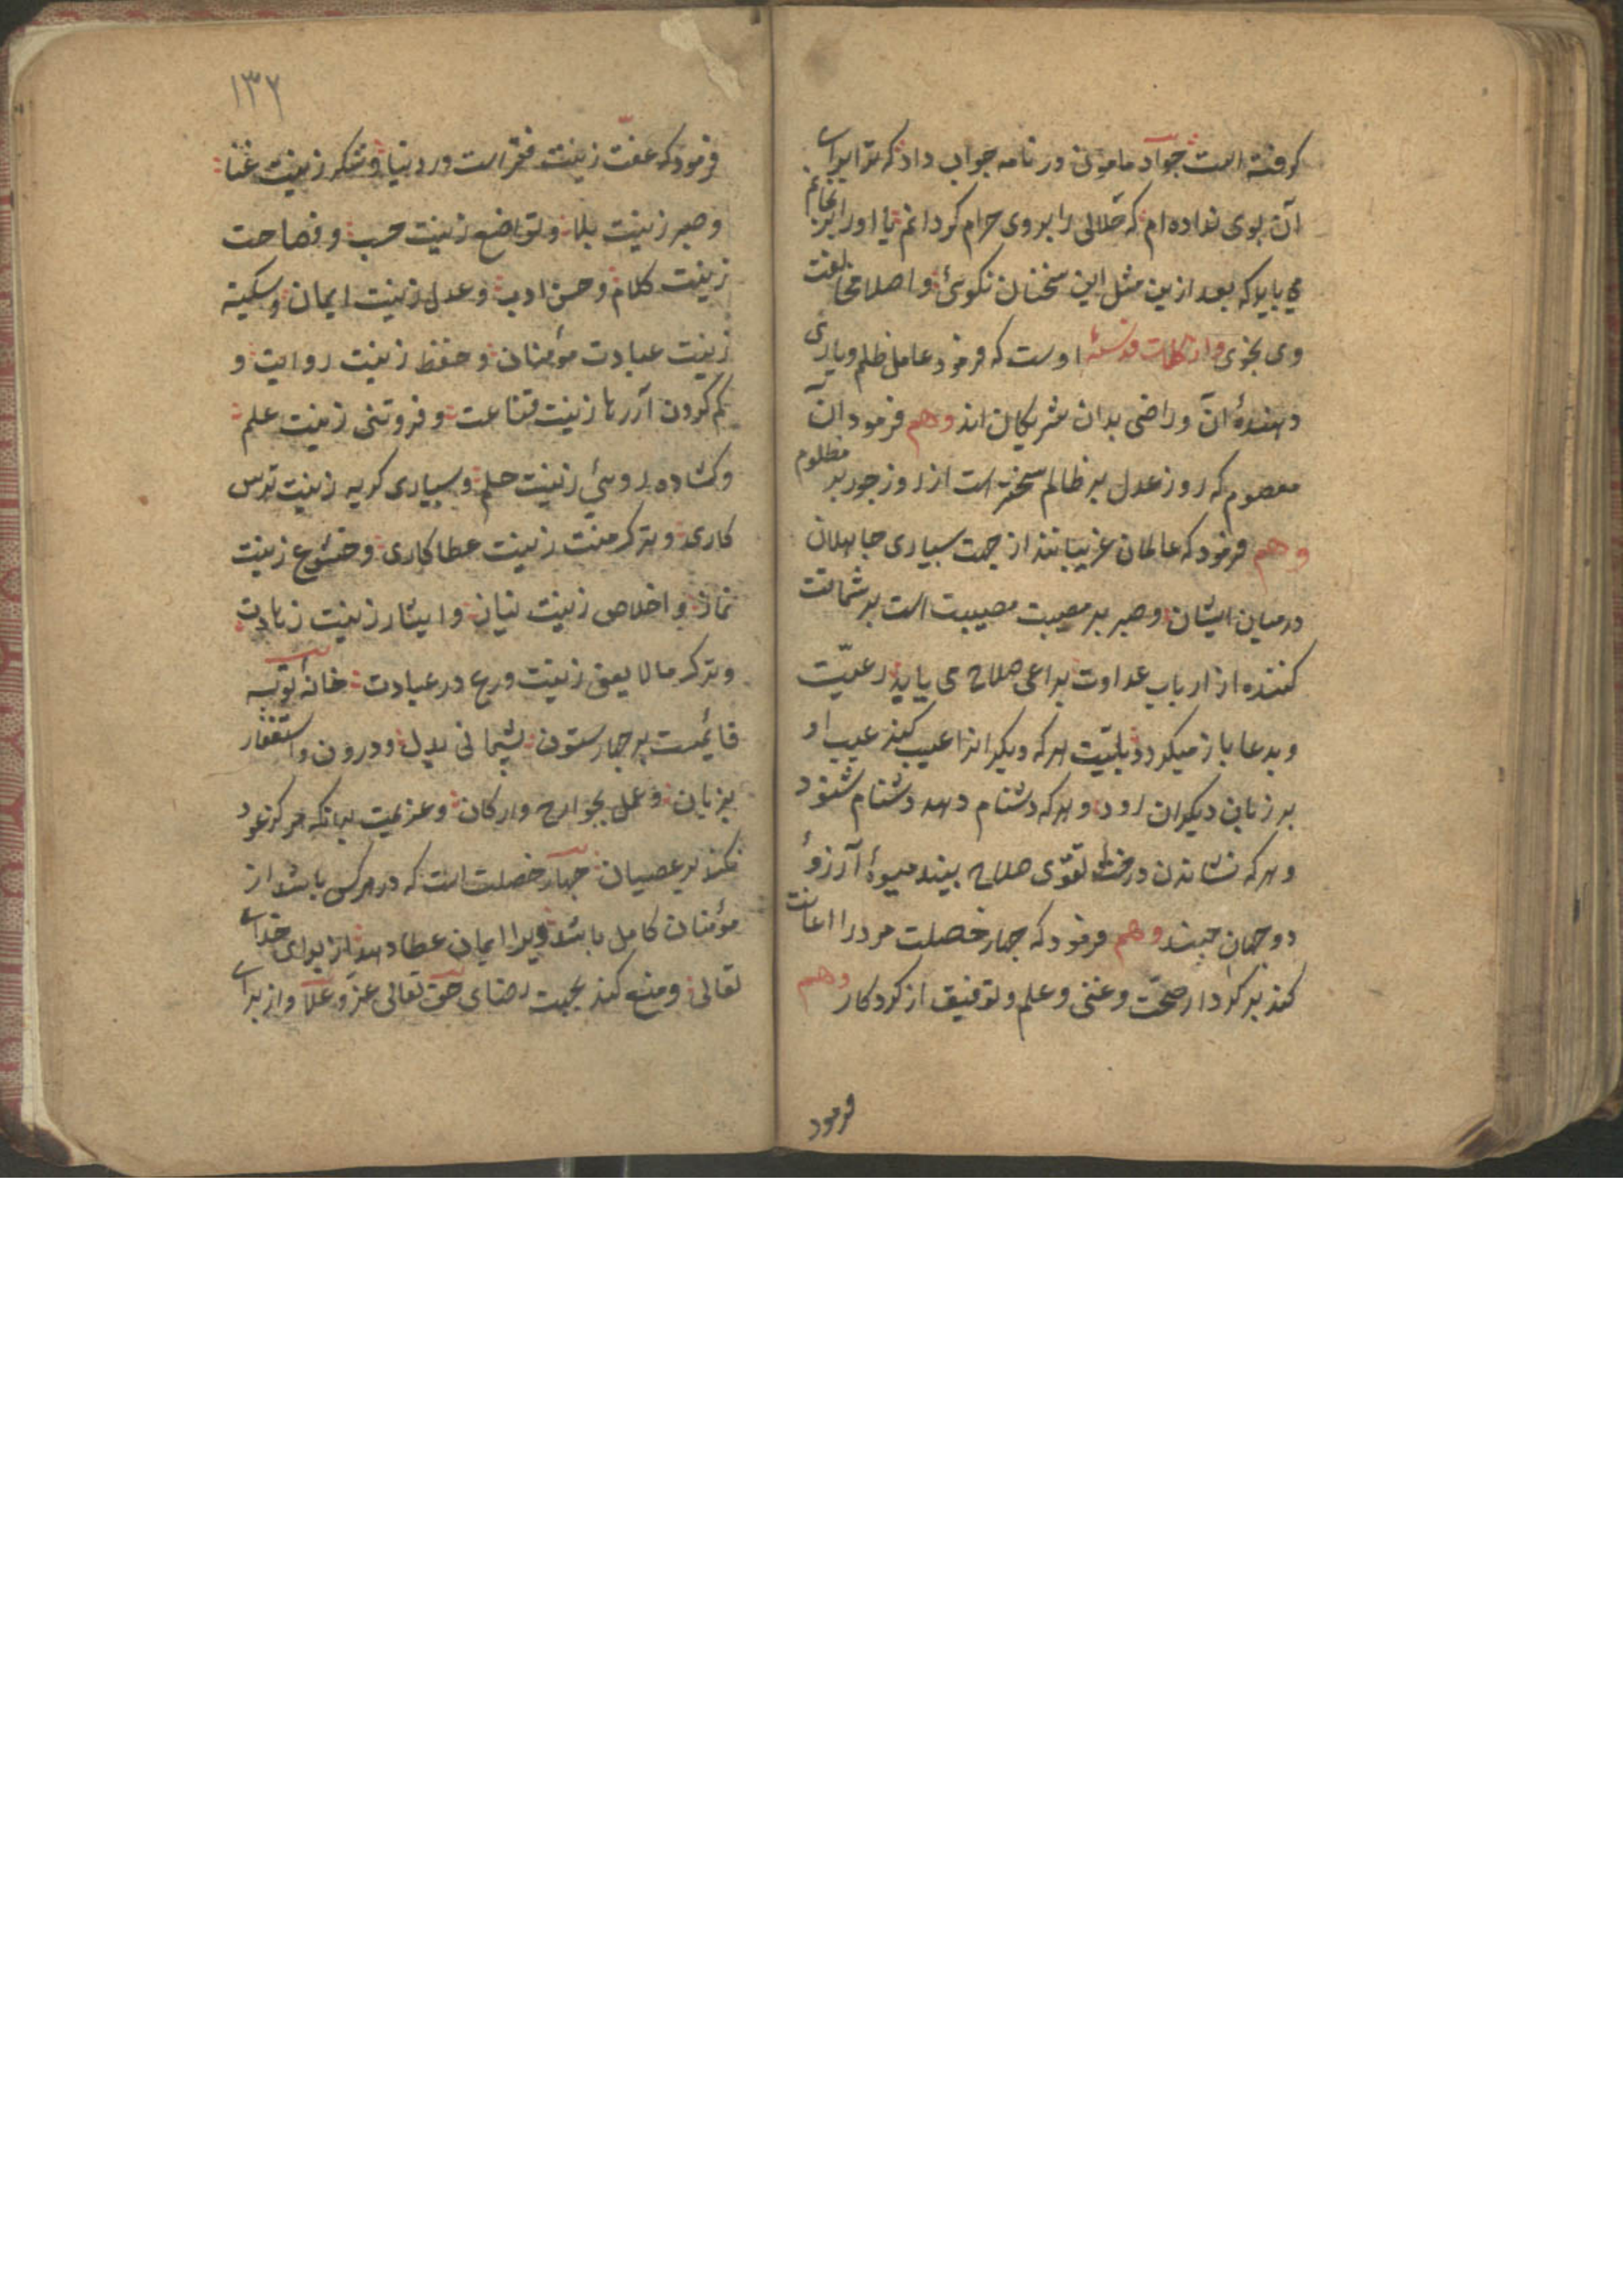 کرفته است جواد مامون در نامه جواب داد که ترا برای
آن بوی نداده ام که حلالی را بر وی حرام کردانم تا او را بر نجانم
می باید که بعد ازین مثل این سخنان نکوئی و اصلا مخالفت
وی نجوی و از کلمات قدسیهٔ اوست که فرمود عامل ظلم و یاری
دهندهٔ آن و راضی بدان شریکان اند وهم فرمود آن
معصوم که روز عدل بر ظالم سختر است از روز جور بر مظلوم
وهم فرمود که عالمان غریبانند از جهت بسیاری جاهلان
در میان ایشان و صبر بر مصیبت مصیبت است بر شماتت
کننده از ارباب عداوت براعی صلاح می یابد رعیّت
و بدعا باز میکردد بلیّت هر که دیکرانرا عیب کند عیب او
بر زبان دیکران رود و هر که دشنام دهد دشنام شنود
و هر که نشاندن درخت تقوی صلاح بیند میوهٔ آرزؤ
دو جهان چیند وهم فرمود که چهار خصلت مرد را اعانت
کند بر کردار صحّت و غنی و علم و توفیق از کردکار وهم
فرمود
۱۳۲
فرمود که عفّت زینت فقر است در دنیا و شکر زینت غنا
و صبر زینت بلا و تواضع زینت حسب و فصاحت
زینت کلام و حسن ادب و عدل زینت ایمان و سکینه
زینت عبادت مؤمنان و حفظ زینت روایت و
کم کردن آزرها زینت قناعت و فروتنی زینت علم
و کشاده روئی زینت حلم و بسیاری کریه زینت ترس
کاری و ترک منّت زینت عطا کاری و خشوع زینت
نماز و اخلاص زینت نیاز و ایثار زینت زهادت
و ترک ما لا یعنی زینت ورع در عبادت خانه توبه
قائمست بر چهار ستون پشیمانی بدل و درون و استغفار
بزبان و عمل بجوارح و ارکان و عزیمت بدانکه هرکز عود
نکند بر عصیان چهار خصلت است که در هر کس باشد از
مؤمنان کامل باشد ویرا ایمان عطا دهد از برای خدای
تعالی و منع کند بجهت رضای حق تعالی عزّ و علا و از برای